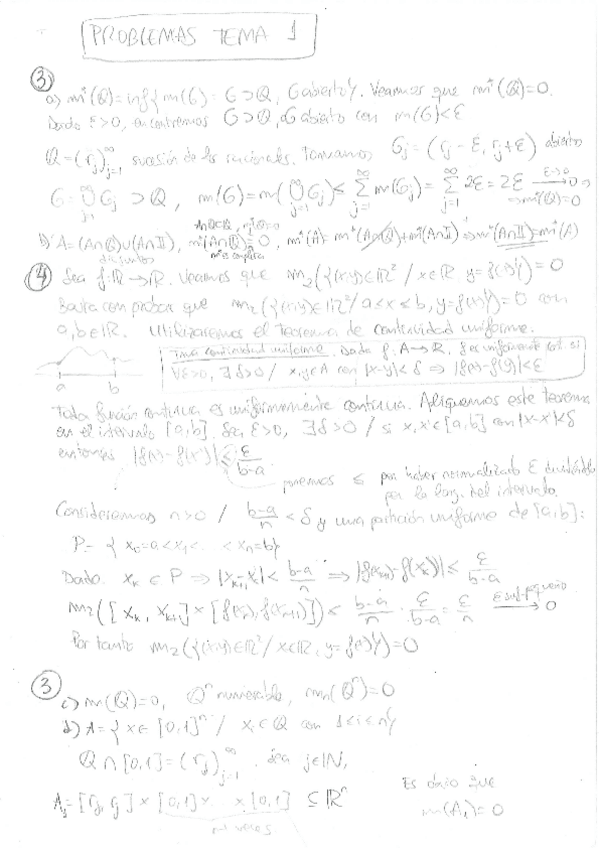 PROBLEMAS TEMA 1
③
a) m*(Q)=inf{m(G): G⊃Q, G abierto}. Veamos que m*(Q)=0.
Dado ε>0, encontremos G⊃Q, G abierto con m(G)<ε
Q=(r_j)_{j=1}^∞ sucesión de los racionales. Tomamos G_j=(r_j-ε, r_j+ε) abierto
G=∪_{j=1}^∞ G_j ⊃Q, m(G)=m(∪_{j=1}^∞ G_j)≤∑_{j=1}^∞ m(G_j)=∑_{j=1}^∞ 2ε=2ε →^{ε→0} 0 ⇒ m*(Q)=0
b) A=(A∩Q)∪(A∩I), m*(A∩Q)=0, m*(A)=m*(A∩Q)+m*(A∩I) ⇒ m*(A∩I)=m*(A)
disjuntos
④ Sea f:R→R. Veamos que m_2({(x,y)∈R²/x∈R, y=f(x)})=0
Basta con probar que m_2({(x,y)∈R²/a≤x≤b, y=f(x)})=0 con
a,b∈R. Utilizaremos el teorema de continuidad uniforme.
Tma continuidad uniforme. Dada f:A→R, f es uniformemente cont. si
∀ε>0, ∃δ>0 / x,y∈A con |x-y|<δ ⇒ |f(x)-f(y)|<ε
a b
Toda función continua es uniformemente continua. Apliquemos este teorema
en el intervalo [a,b]. Sea ε>0, ∃δ>0 / si x,x'∈[a,b] con |x-x'|<δ
entonces |f(x)-f(x')|≤ε/(b-a)
ponemos ≤ por haber normalizado ε dividiéndolo
por la long. del intervalo.
Consideramos n>0 / (b-a)/n<δ y una partición uniforme de [a,b]:
P={x_0=a<x_1<...<x_n=b}
Dado x_k∈P ⇒ |x_{k+1}-x_k|<(b-a)/n ⇒ |f(x_{k+1})-f(x_k)|<ε/(b-a)
m_2([x_k, x_{k+1}]×[f(x_k), f(x_{k+1})])<(b-a)/n·ε/(b-a)=ε/n → 0
Por tanto m_2({(x,y)∈R²/x∈R, y=f(x)})=0
③
c) m(Q)=0, Q^n numerable, m_n(Q^n)=0
d) A={x∈[0,1]^n / x_i∈Q con 1≤i≤n}
Q∩[0,1]=(r_j)_{j=1}^∞. Sea j∈N,
A_j=[r_j, r_j]×[0,1]×...×[0,1]⊆R^n
n-1 veces
Es obvio que
m(A_j)=0